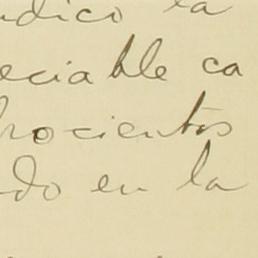 ndico la
eciable ca
hrocientos
do en la